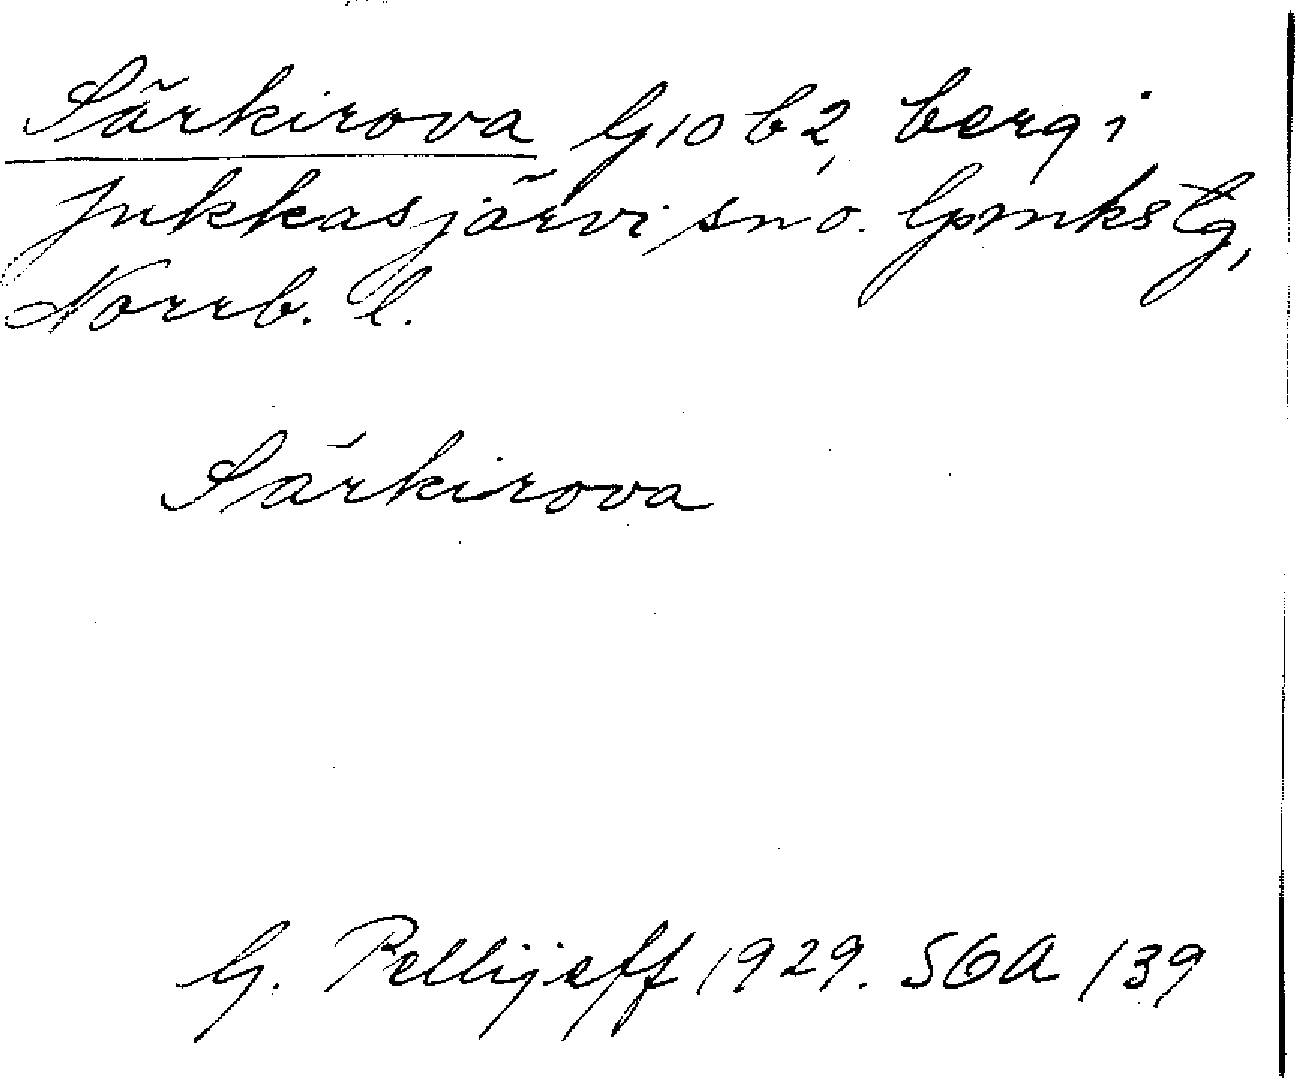 Särkirova G10 b2, berg i
Jukkasjärvi sn o. lpmkstg,
Norrb. l.
Särkirova
G. Pellijeff 1929. SOA 139